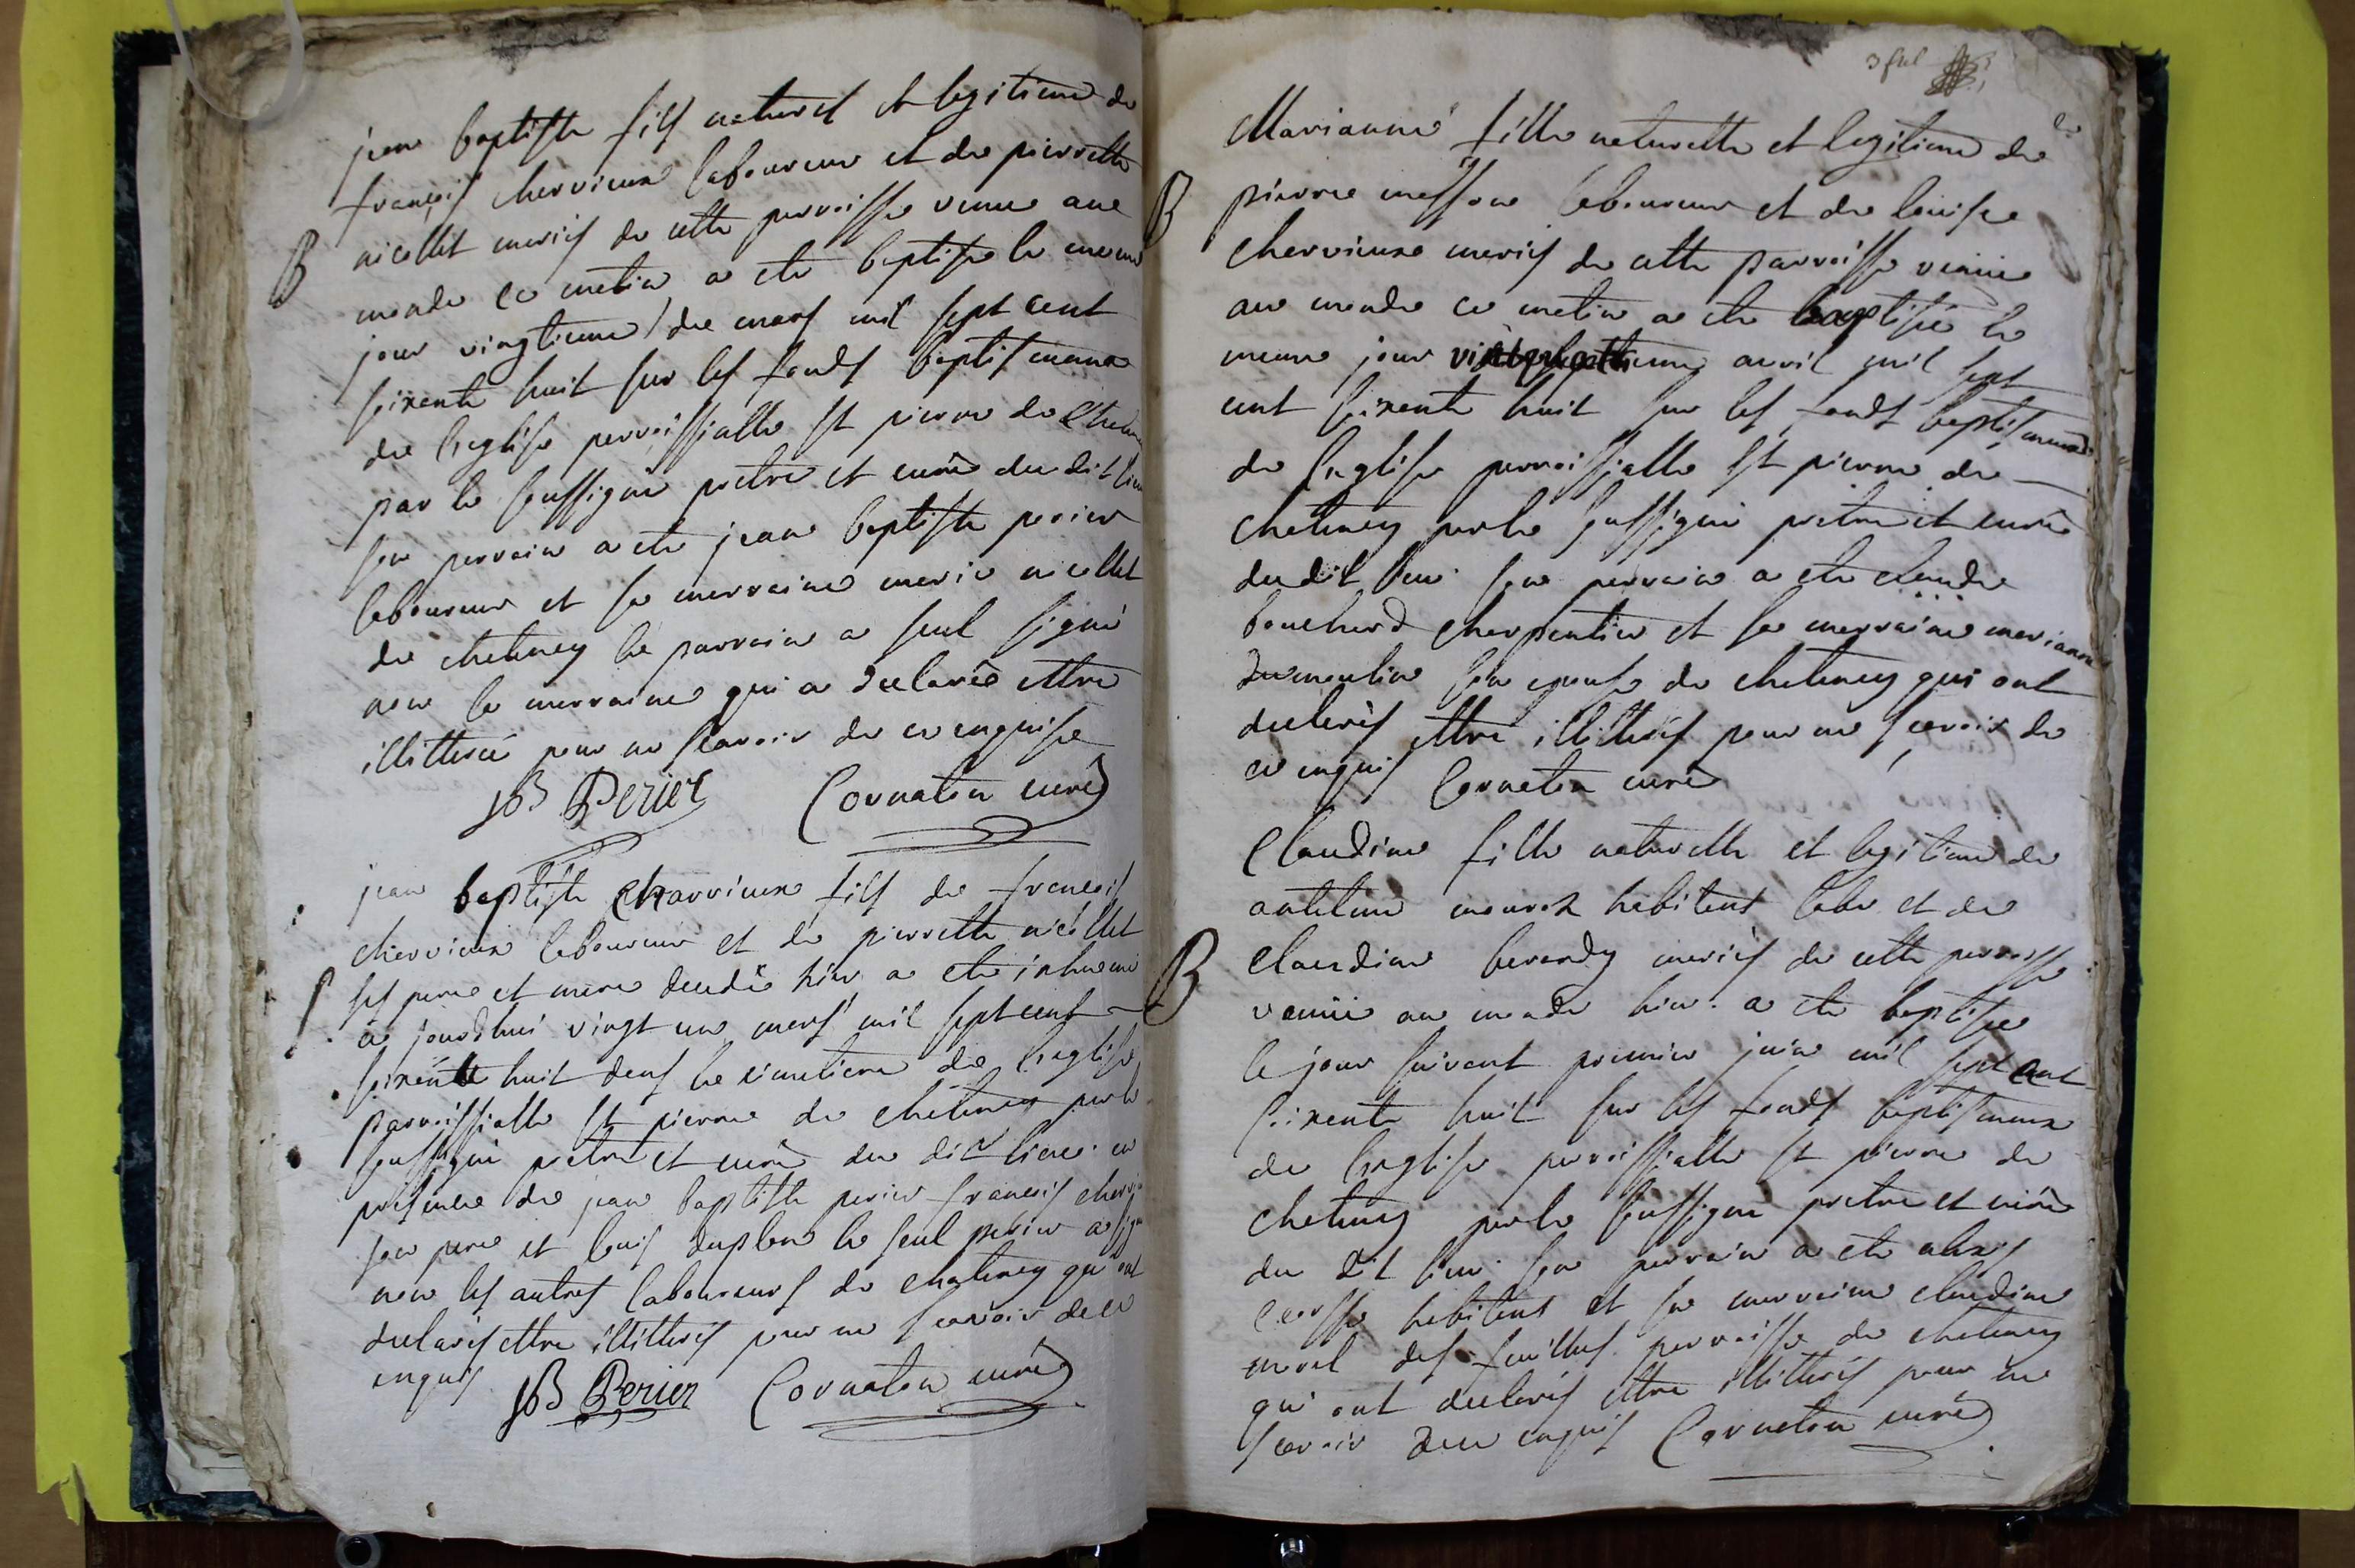 jean baptiste fils naturel et legitime de
françois chervieux laboureur et de pierrette
B
nicollet mariés de cette parroisse venu au
monde ce matin a ete baptisé le meme
jour vingtieme de mars mil sept cent
soixente huit sur les fonds baptismaux
de l'eglise parroissialle St pierre de
par le soussigné pretre et curé du dit lieu
son parrain a ete jean baptiste perier
laboureur et sa marraine marie nicollet
de chatenay le parrain a seul signé
non la marraine qui a declaré ettre
illitteré pour ne scavoir de ce enquise
JB Perier Cornaton curé
jean baptiste charvieux fils de françois
chervieux laboureur et de pierrette nicollet
ses pere et mere decedé hier a ete inhumé
ce jourdhui vingt un mars mil sept cent
soixente huit dans le cimetiere de l'eglise
parroissialle St pierre de chatenay par le
soussigné pretre et curé du dit lieu en
presence de jean baptiste perier françois
son pere et louis duplan le seul perier a
non les autres laboureurs de chatenay qui ont
declarés ettre illitterés pour ne scavoir de ce
enquis JB Perier Cornaton curé
Marianne fille naturelle et legitime de
B
pierre messon laboureur et de louise
chervieux mariés de cette parroisse venüe
au monde ce matin a ete baptisée le
meme jour avril mil sept
cent soixente huit sur les fonds baptismaux
de l'eglise parroissialle St pierre de
chatenay par le soussigné pretre et curé
du dit lieu son parrain a ete claude
bouchard charpentier et sa marraine marianne
dumoulin son epouse de chatenay qui ont
declarés ettre illitterés pour ne scavoir de
ce enquis Cornaton curé
Claudine fille naturelle et legitime de
antelme habitent et de
B
claudine mariés de cette parroisse
venüe au monde hier a ete baptisée
le jour suivant premier juin mil sept cent
soixente huit sur les fonds baptismaux
de l'eglise parroissialle St pierre de
chatenay par le soussigné pretre et curé
du dit lieu son parrain a ete alexis
habitent et sa marraine claudine
morel des parroisse de chatenay
qui ont declarés ettre illitterés pour ne
scavoir de ce enquis Cornaton curé